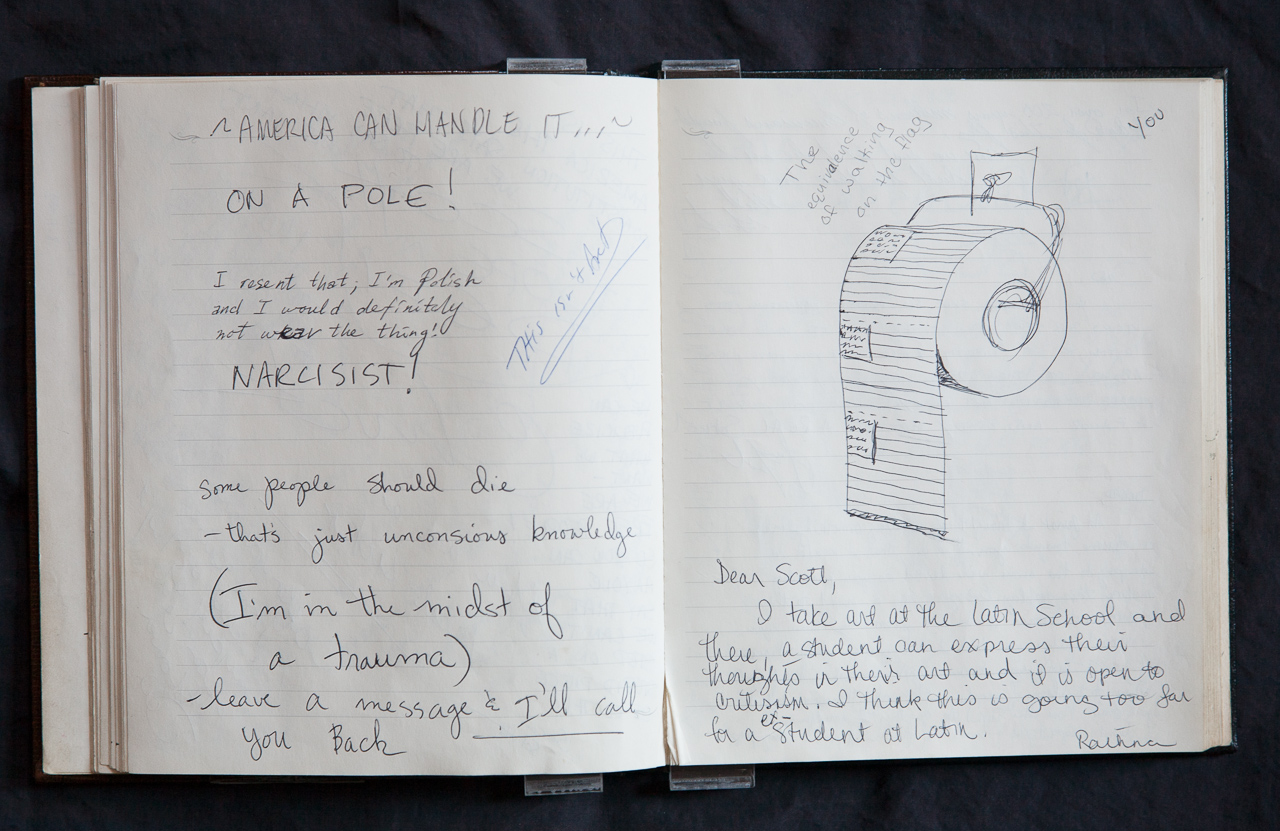 ~AMERICA CAN HANDLE IT...~
ON A POLE!
I resent that, I'm Polish
and I would definitely
not wear the thing!
NARCISIST!
THis isn't bad
some people should die
-that's just unconsious knowledge
(I'm in the midst of
a trauma)
-leave a message & I'll call
you Back
YOU
The
equividence
of walking
on the flag
Dear Scott,
I take art at the Latin School and
there, a student can express their
thoughts in theirs art and it is open to
critisism. I think this is going too far
for a ex-student at Latin.